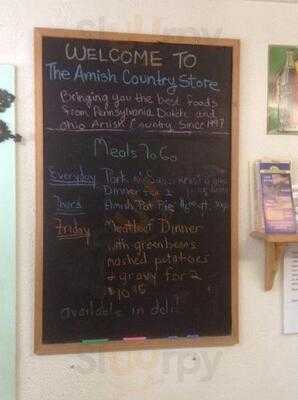 WELCOME TO
The Amish Country Store
Bringing you the best foods
from Pennsylvania Dutch and
Ohio Amish Country, Since 1997
Meals To Go
Everyday Pork
Dinner for 2
Thurs Amish Pot Pie qt.
Friday Meatloaf Dinner
with greenbeans
mashed potatoes
& gravy for 2
$10.95
available in deli!
Sluurpy
Sluurpy